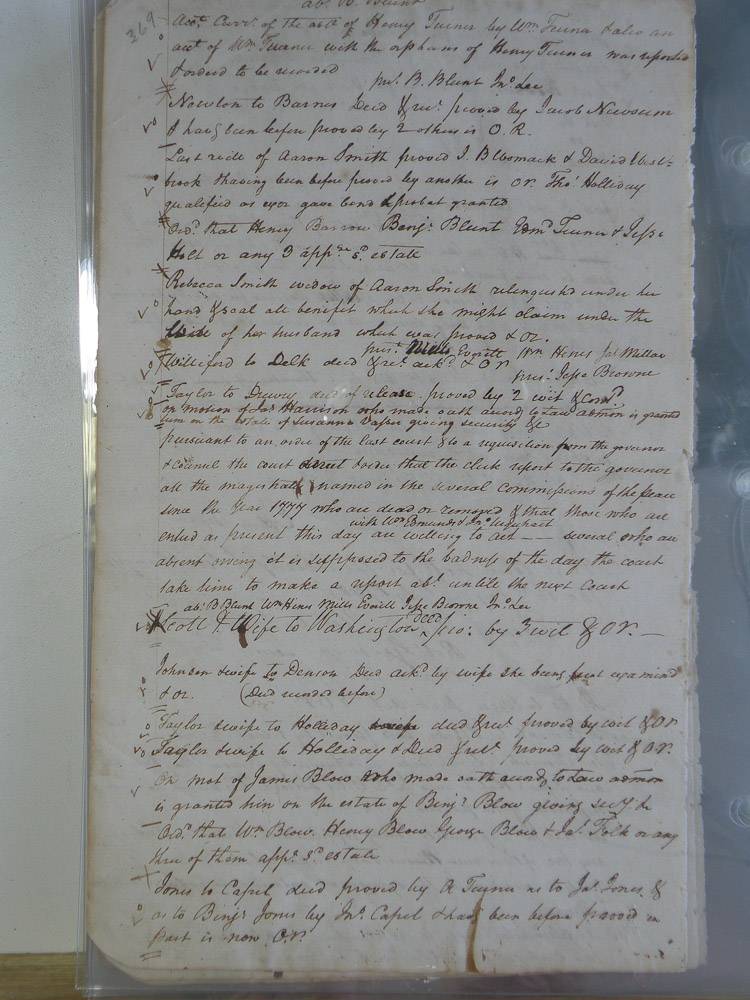 369
ab. B. Blunt
Acct. Curr. of the este of Henry Turner by Wm Turner & also an
acct of Wm Turner with the orphans of Henry Turner was reported
& orderd to be recorded
prest. B. Blunt Jno. Lee
Newton to Barnes Deed & rec. proved by Jacob Newsum
& hang been before proved by 2 others is O. R.
Last will of Aaron Smith proved J. B. Womack & David West-
brook & having been before proved by another is Or. Thos. Holliday
qualified as exor gave bond & probat granted
Ord. that Henry Barrow Benja. Blunt Edmd Turner & Jesse
Holt or any 3 appre sd. estate
Rebecca Smith widow of Aaron Smith relinquishd under her
hand & seal all benefit which she might claim under the
will of her husband which was proved & Or.
prest. Mills Everitt Wm Hines Jas Millar
Williford to Delk deed & rec. ackd & Or
prest. Jesse Browne
Taylor to Drewry deed of release proved by 2 wit & Contd
on motion of Jas Harrison who made oath accordg to Law admon. is granted
him on the estate of Susanna giving security &c
pursuant to an order of the last court & to a requisition from the governor
& council the court direct & order that the clerk report to the governor
all the magistrates named in the several commissions of the peace
since the Year 1777 who are dead or removed & that those who are
with Wm Edmunds & Jno. Urquhart
enterd as present this day are willing to act — several who are
absent owing it is supposed to the badness of the day the court
take time to make a report abt. untill the next Court
abt. B Blunt Wm Hines Mills Everitt Jesse Browne Jno. Lee
Scott & Wife to Washington deed pro. by 3 wit & Or. —
Johnson & wife to Denson Deed ackd. by wife she being first examined
& or. (Deed recorded before)
Taylor & wife to Holliday deed & rect. proved by wit & Or
Taylor & wife to Holleday & Deed & rect. proved by wit & Or.
On mot of James Blow who made oath accordg to Law admon
is granted him on the estate of Benja. Blow giving secy &c
Ord. that Wm Blow. Henry Blow George Blow & Jas. Folk or any
three of them appr. sd. estate
Jones to Capel deed proved by A Turner as to Jas. Jones &
as to Benja Jones by Jno. Capel & havg been before proved in
Part is now O.r.